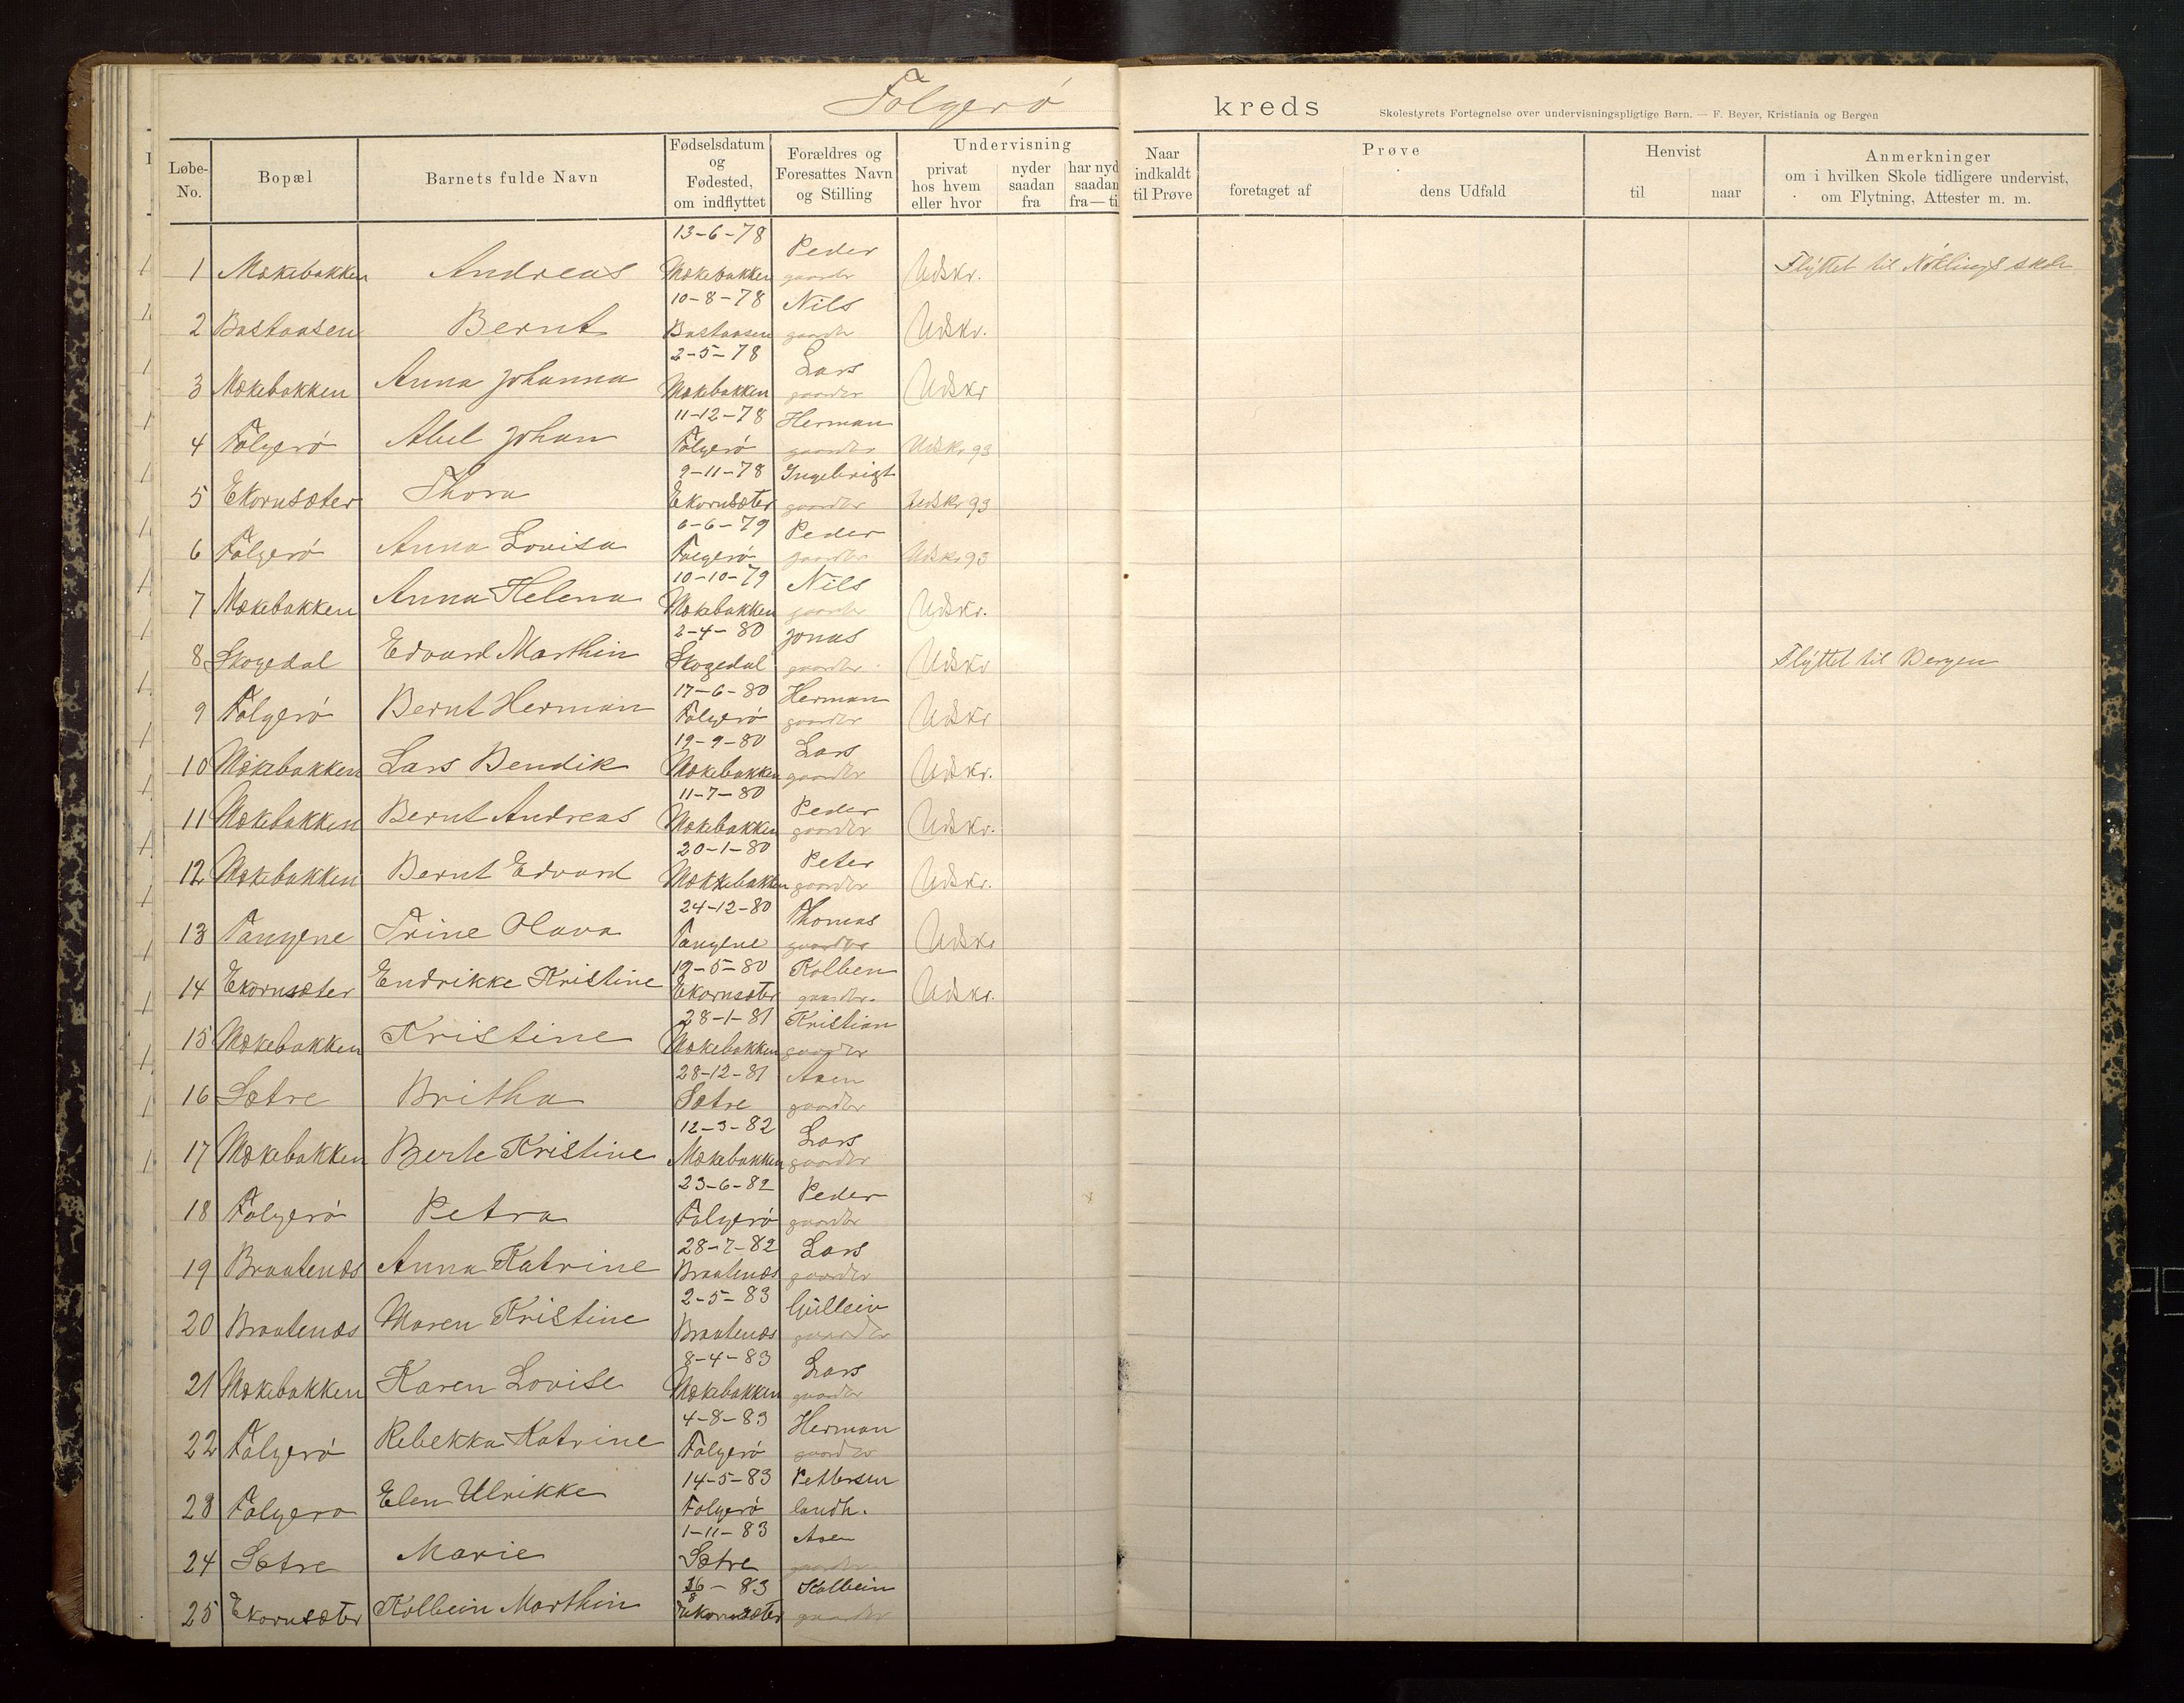 Folgerø kreds
Skolestyrets Fortegnelse over undervisningspligtige Børn. — F. Beyer, Kristiania og Bergen
Løbe-No. Bopæl Barnets fulde Navn Fødselsdatum og Fødested, om indflyttet Forældres og Foresattes Navn og Stilling Undervisning privat hos hvem eller hvor nyder saadan fra har nyd saadan fra—ti Naar indkaldt til Prøve Prøve foretaget af dens Udfald Henvist til naar Anmerkninger om i hvilken Skole tidligere undervist, om Flytning, Attester m. m.
1 Mækebakken Andreas 13-6-78 Mækebakken Peder gaardbr Udskr. Flyttet til Nøklings skole
2 Bastaasen Bernt 10-8-78 Bastaasen Nils gaardbr Udskr.
3 Mækebakken Anna Johanna 2-5-78 Mækebakken Lars gaardbr Udskr
4 Folgerø Abel Johan 11-12-78 Folgerø Herman gaardbr Udskr 93
5 Ekornsæter Thora 9-11-78 Ekornsæter Ingebrigt gaardbr Udskr 93
6 Folgerø Anna Lovisa 6-6-79 Folgerø Peder gaardbr Udskr 93
7 Mækebakken Anna Helena 10-10-79 Mækebakken Nils gaardbr Udskr.
8 Skogedal Edvard Marthin 2-4-80 Skogedal Jonas gaardbr Udskr Flyttet til Bergen
9 Folgerø Bernt Herman 17-6-80 Folgerø Herman gaardbr Udskr
10 Mækebakken Lars Bendik 19-9-80 Mækebakken Lars gaardbr Udskr.
11 Mækebakken Bernt Andreas 11-7-80 Mækebakken Peder gaardbr Udskr.
12 Mækebakken Bernt Edvard 20-1-80 Mækkebakken Peter gaardbr Udskr.
13 Tangene Trine Olava 24-12-80 Tangene Thomas gaardbr Udskr
14 Ekornsæter Endrikke Kristine 19-5-80 Ekornsæter Kolben gaardbr. Udskr.
15 Mækebakken Kristine 28-1-81 Mækebakken Kristian gaardbr
16 Sætre Britha 28-12-81 Sætre gaardbr
17 Mækebakken Berte Kristine 12-3-82 Mækebakken Lars gaardbr
18 Folgerø Petra 23-6-82 Folgerø Peder gaardbr
19 Braatenæs Anna Katrine 28-7-82 Braatenæs Lars gaardbr
20 Braatenæs Maren Kristine 2-5-83 Braatenæs Gulleiv gaardbr
21 Mækebakken Karen Lovise 8-4-83 Mækebakken Lars gaardbr
22 Folgerø Rebekka Katrine 4-8-83 Folgerø Herman gaardbr
23 Folgerø Elen Ulrikke 14-5-83 Folgerø Pettersen landh.
24 Sætre Marie 1-11-83 Sætre gaardbr
25 Ekornsæter Kolbein Marthin 83 Ekornsæter Kolbein gaardbr